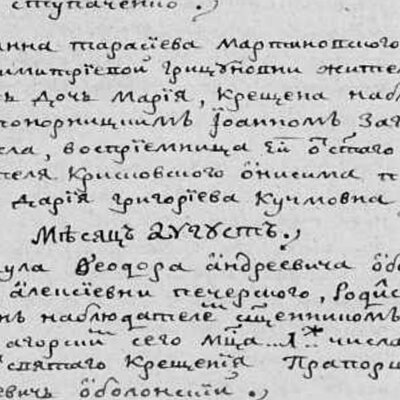 ступаченко ./
анна тарасїева мартиновского
имитрїевой грицуновни жител
ъ дочь марїя, крещена наб
понорницкимъ Їоанномъ Заг
сла, воспрїемница ей
теля крисповского онисима п
дарїя григорїева кучмовна
Мѣсяцъ аугустъ ./
кула Ѳеодора андреевича обо
алеѯїевни печерского,
нъ наблюдателе сщенникомъ
загорски сего мца числа
святаго крещенїя Прапор
евичъ оболонскїй ./